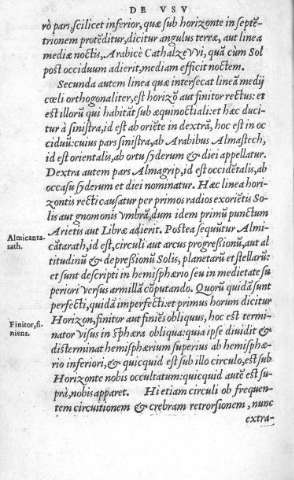 DE VSV
rò pars, scilicet inferior, quæ sub horizonte in septē-
trionem protēditur, dicitur angulus terræ, aut linea
mediæ noctis, Arabicè CathalzeVVi, quā cùm Sol
post occiduum adierit, mediam efficit noctem.
Secunda autem linea quæ intersecat lineā medij
cœli orthogonaliter, est horizō aut finitor rectus: et
est illorū qui habitāt sub æquinoctiali: et hæc duci-
tur à sinistra, id est ab oriēte in dextrā, hoc est in oc
ciduū: cuius pars sinistra, ab Arabibus Almastech,
id est orientalis, ab ortu syderum & diei appellatur.
Dextra autem pars Almagrip, id est occidētalis, ab
occasu syderum et diei nominatur. Hæc linea hori-
zontis recti causatur per primos radios exoriētis So-
lis aut gnomonis vmbrā, dum idem primū punctum
Arietis aut Libræ adierit. Postea sequūtur Almi-
Almicanta-
rath.
cātarath, id est, circuli aut arcus progressionū, aut al
titudinū & depressionū Solis, planetarū et stellarū:
et sunt descripti in hemisphærio seu in medietate su
periori versus armillā cōputando. Quorū quidā sunt
perfecti, quidā imperfecti: et primus horum dicitur
Finitor, fi-
niens.
Horizon, finitor aut finiēs obliquus, hoc est termi-
nator visus in sphæra obliqua: quia ipse diuidit &
disterminat hemisphærium superius ab hemisphæ-
rio inferiori, & quicquid est sub illo circulo, est sub
Horizonte nobis occultatum: quicquid autē est su-
prà, nobis apparet. Hi etiam circuli ob frequen-
tem circuitionem & crebram retrorsionem, nunc
extra-